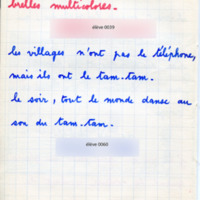 brelles multicolores.
élève 0059
les villages n'ont pas le téléphone,
mais ils ont le tam-tam.
le soir, tout le monde danse au
son du tam-tam.
élève 0060